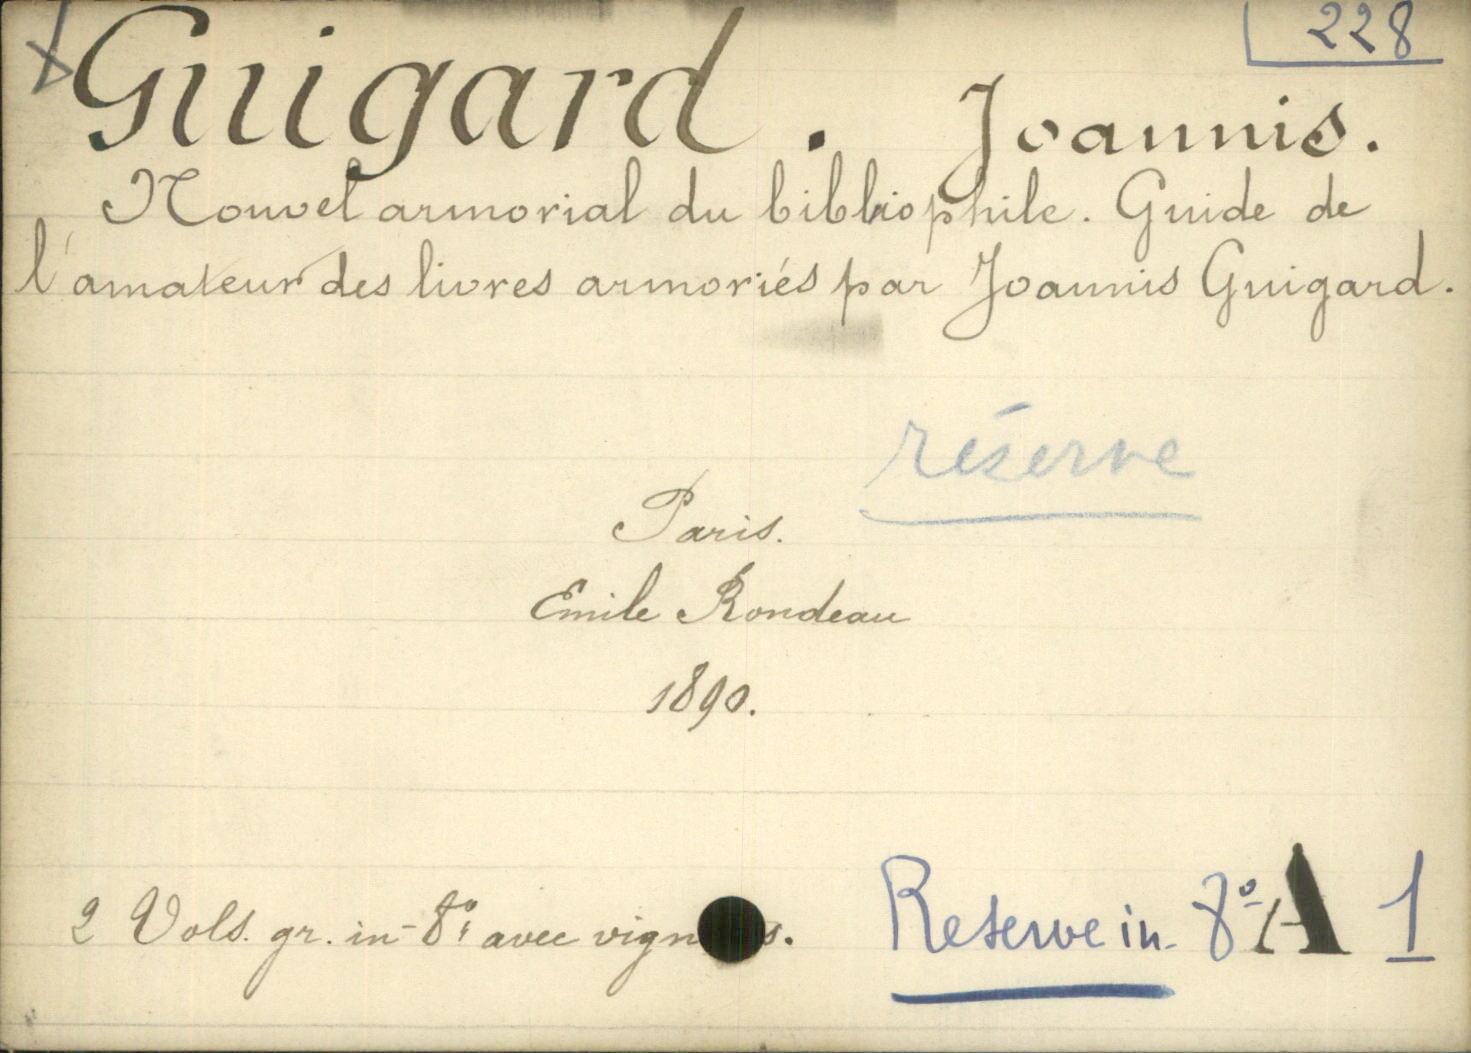 228
Guigard. Joannis.
Nouvel armorial du bibliophile. Guide de
l'amateur des livres armoriés par Joannis Guigard.
réserve
Paris.
Emile Rondeau
1890.
2 Vols. gr. in-8º avec
Reserve in-8º A 1